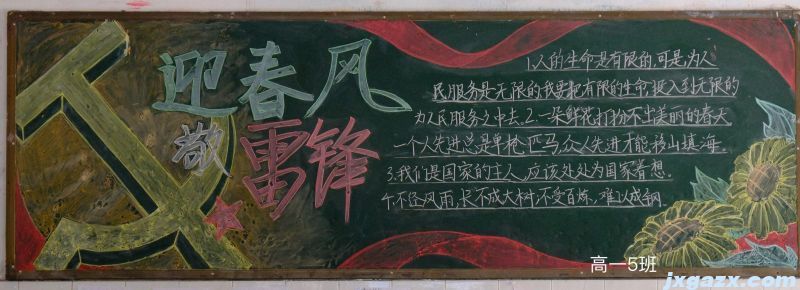 迎春风
敬雷锋
1.人的生命是有限的,可是为人
民服务是无限的,我要把有限的生命,投入到无限的
为人民服务之中去。2.一朵鲜花打扮不出美丽的春天
一个人先进总是单枪匹马,众人先进才能移山填海。
3.我们是国家的主人,应该处处为国家着想。
4.不经风雨,长不成大树,不受百炼,难以成钢。
高一5班
jxgazx.com